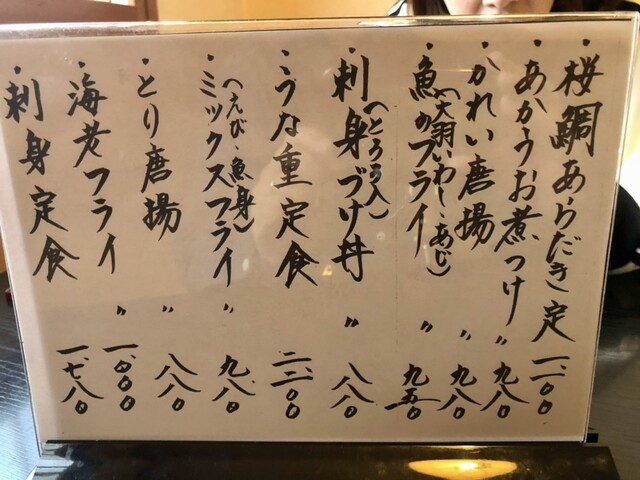 ・桜鯛あらだき定 一、一〇〇
・あかうお煮つけ 〃 九八〇
・かれい唐揚 〃 九八〇
・魚のフライ 〃 九五〇
(大羽いわし・あじ)
・刺身づけ丼 〃 八八〇
(とろろ入)
・うな重定食 二、二〇〇
・ミックスフライ 〃 九八〇
(えび・魚・身)
・とり唐揚 〃 八八〇
・海老フライ 〃 一、〇〇〇
・刺身定食 一、七八〇